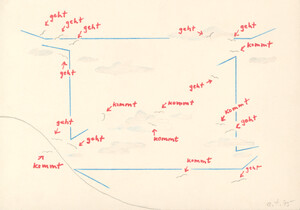 geht
geht
geht
geht
geht
geht
geht
kommt
kommt
kommt
geht
geht
geht
kommt
kommt
kommt
geht